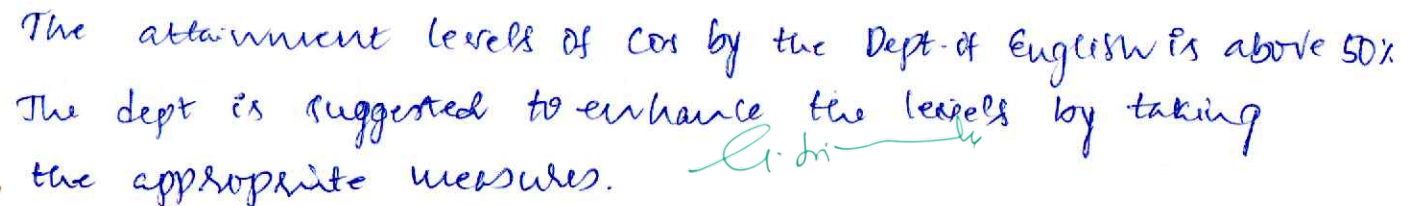 The attainment levels of COs by the Dept. of English is above 50%
The dept is suggested to enhance the levels by taking
the appropriate measures.